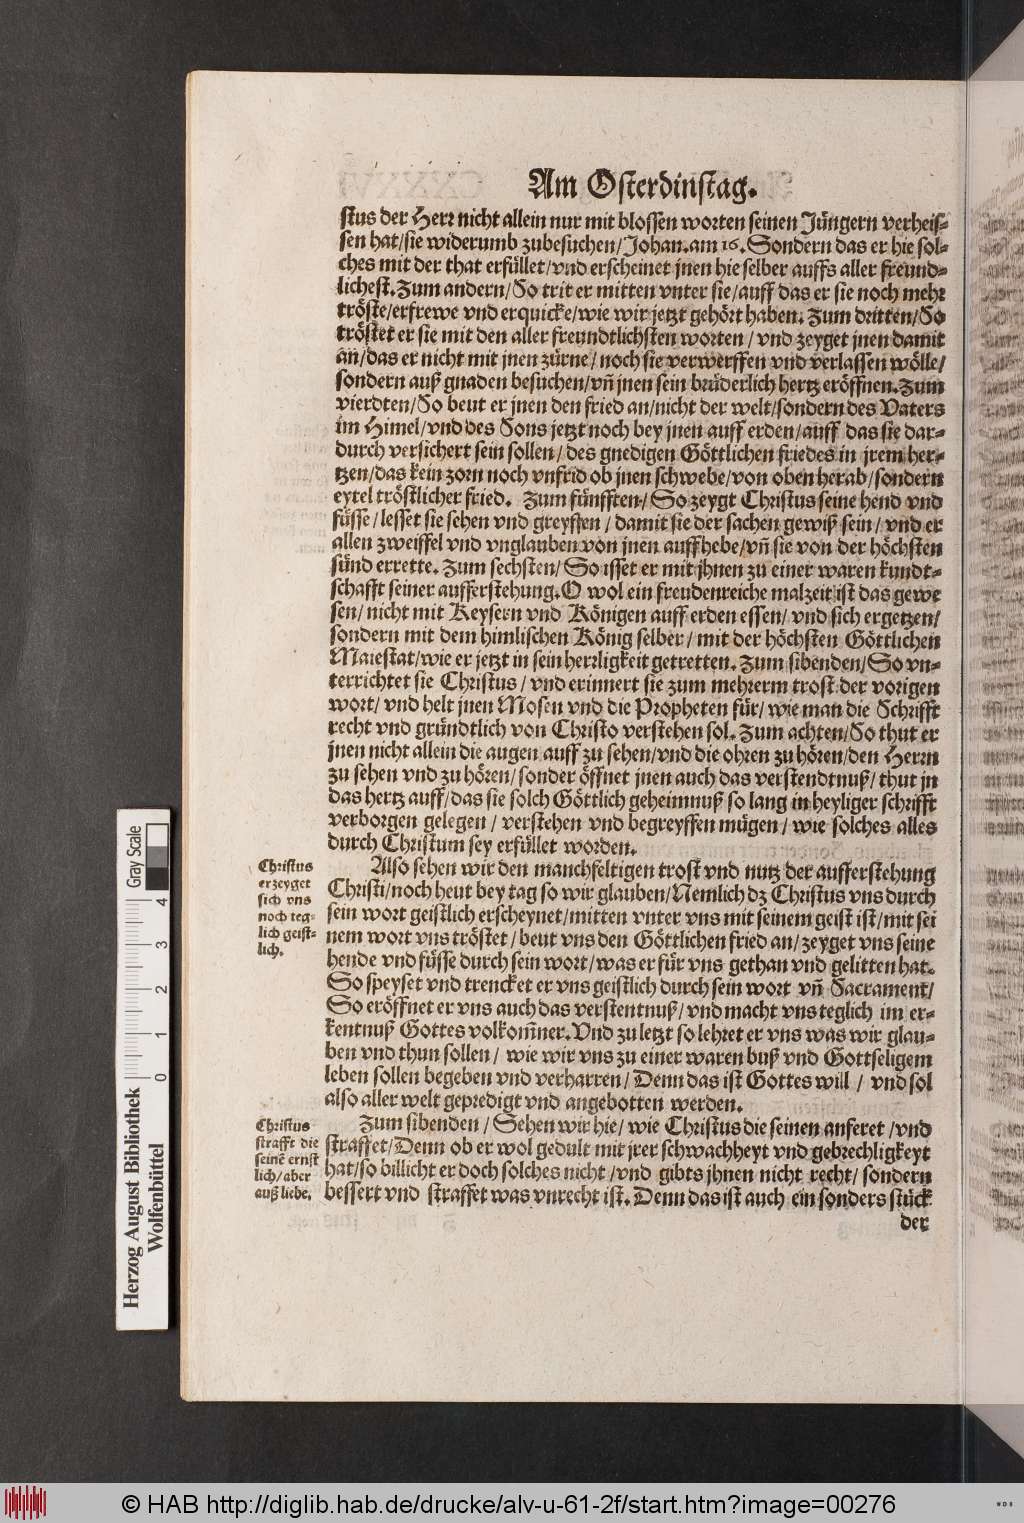 Am Osterdinstag.
stus der Herr nicht allein nur mit blossen worten seinen Jüngern verheis-
sen hat/sie widerumb zubesuchen/Johan.am 16. Sondern das er hie sol-
ches mit der that erfüllet/vnd erscheinet jnen hie selber auffs aller freund-
lichest. Zum andern/So trit er mitten vnter sie/auff das er sie noch mehr
tröste/erfrewe vnd erquicke/wie wir jetzt gehört haben. Zum dritten/So
tröstet er sie mit den aller freundtlichsten worten/vnd zeyget jnen damit
an/das er nicht mit jnen zürne/noch sie verwerffen vnd verlassen wölle/
sondern auß gnaden besuchen/vñ jnen sein brüderlich hertz eröffnen. Zum
vierdten/So beut er jnen den fried an/nicht der welt/sondern des Vaters
im Himel/vnd des Sons jetzt noch bey jnen auff erden/auff das sie dar-
durch versichert sein sollen/des gnedigen Göttlichen friedes in jrem her-
tzen/das kein zorn noch vnfrid ob jnen schwebe/von oben herab/sondern
eytel tröstlicher fried. Zum fünfften/So zeygt Christus seine hend vnd
füsse/lesset sie sehen vnd greyffen/damit sie der sachen gewiß sein/vnd er
allen zweiffel vnd vnglauben von jnen auffhebe/vñ sie von der höchsten
sünd errette. Zum sechsten/So isset er mit jhnen zu einer waren kundt-
schafft seiner aufferstehung. O wol ein freudenreiche malzeit ist das gewe
sen/nicht mit Keysern vnd Königen auff erden essen/vnd sich ergetzen/
sondern mit dem himlischen König selber/mit der höchsten Göttlichen
Maiestat/wie er jetzt in sein herrligkeit getretten. Zum sibenden/So vn-
terrichtet sie Christus/vnd erinnert sie zum mehrerm trost der vorigen
wort/vnd helt jnen Mosen vnd die Propheten für/wie man die Schrifft
recht vnd gründtlich von Christo verstehen sol. Zum achten/So thut er
jnen nicht allein die augen auff zu sehen/vnd die ohren zu hören/den Herrn
zu sehen vnd zu hören/sonder öffnet jnen auch das verstendtnuß/thut jn
das hertz auff/das sie solch Göttlich geheimnuß so lang in heyliger schrifft
verborgen gelegen/verstehen vnd begreyffen mügen/wie solches alles
durch Christum sey erfüllet worden.
Christus
erzeyget
sich vns
noch teg-
lich geist-
lich.
Also sehen wir den manchfeltigen trost vnd nutz der aufferstehung
Christi/noch heut bey tag so wir glauben/Nemlich dz Christus vns durch
sein wort geistlich erscheynet/mitten vnter vns mit seinem geist ist/mit sei
nem wort vns tröstet/beut vns den Göttlichen fried an/zeyget vns seine
hende vnd füsse durch sein wort/was er für vns gethan vnd gelitten hat.
So speyset vnd trencket er vns geistlich durch sein wort vñ Sacrament/
So eröffnet er vns auch das verstentnuß/vnd macht vns teglich im er-
kentnuß Gottes volkom̃ner. Vnd zu letzt so lehret er vns was wir glau-
ben vnd thun sollen/wie wir vns zu einer waren buß vnd Gottseligem
leben sollen begeben vnd verharren/Denn das ist Gottes will/vnd sol
also aller welt gepredigt vnd angebotten werden.
Christus
strafft die
seinē ernst
lich/aber
auß liebe.
Zum sibenden/Sehen wir hie/wie Christus die seinen anferet/vnd
straffet/Denn ob er wol gedult mit jrer schwachheyt vnd gebrechligkeyt
hat/so billicht er doch solches nicht/vnd gibts jhnen nicht recht/sondern
bessert vnd straffet was vnrecht ist. Denn das ist auch ein sonders stück
der
Herzog August Bibliothek
Wolfenbüttel
0 1 2 3 4
Gray Scale
© HAB http://diglib.hab.de/drucke/alv-u-61-2f/start.htm?image=00276